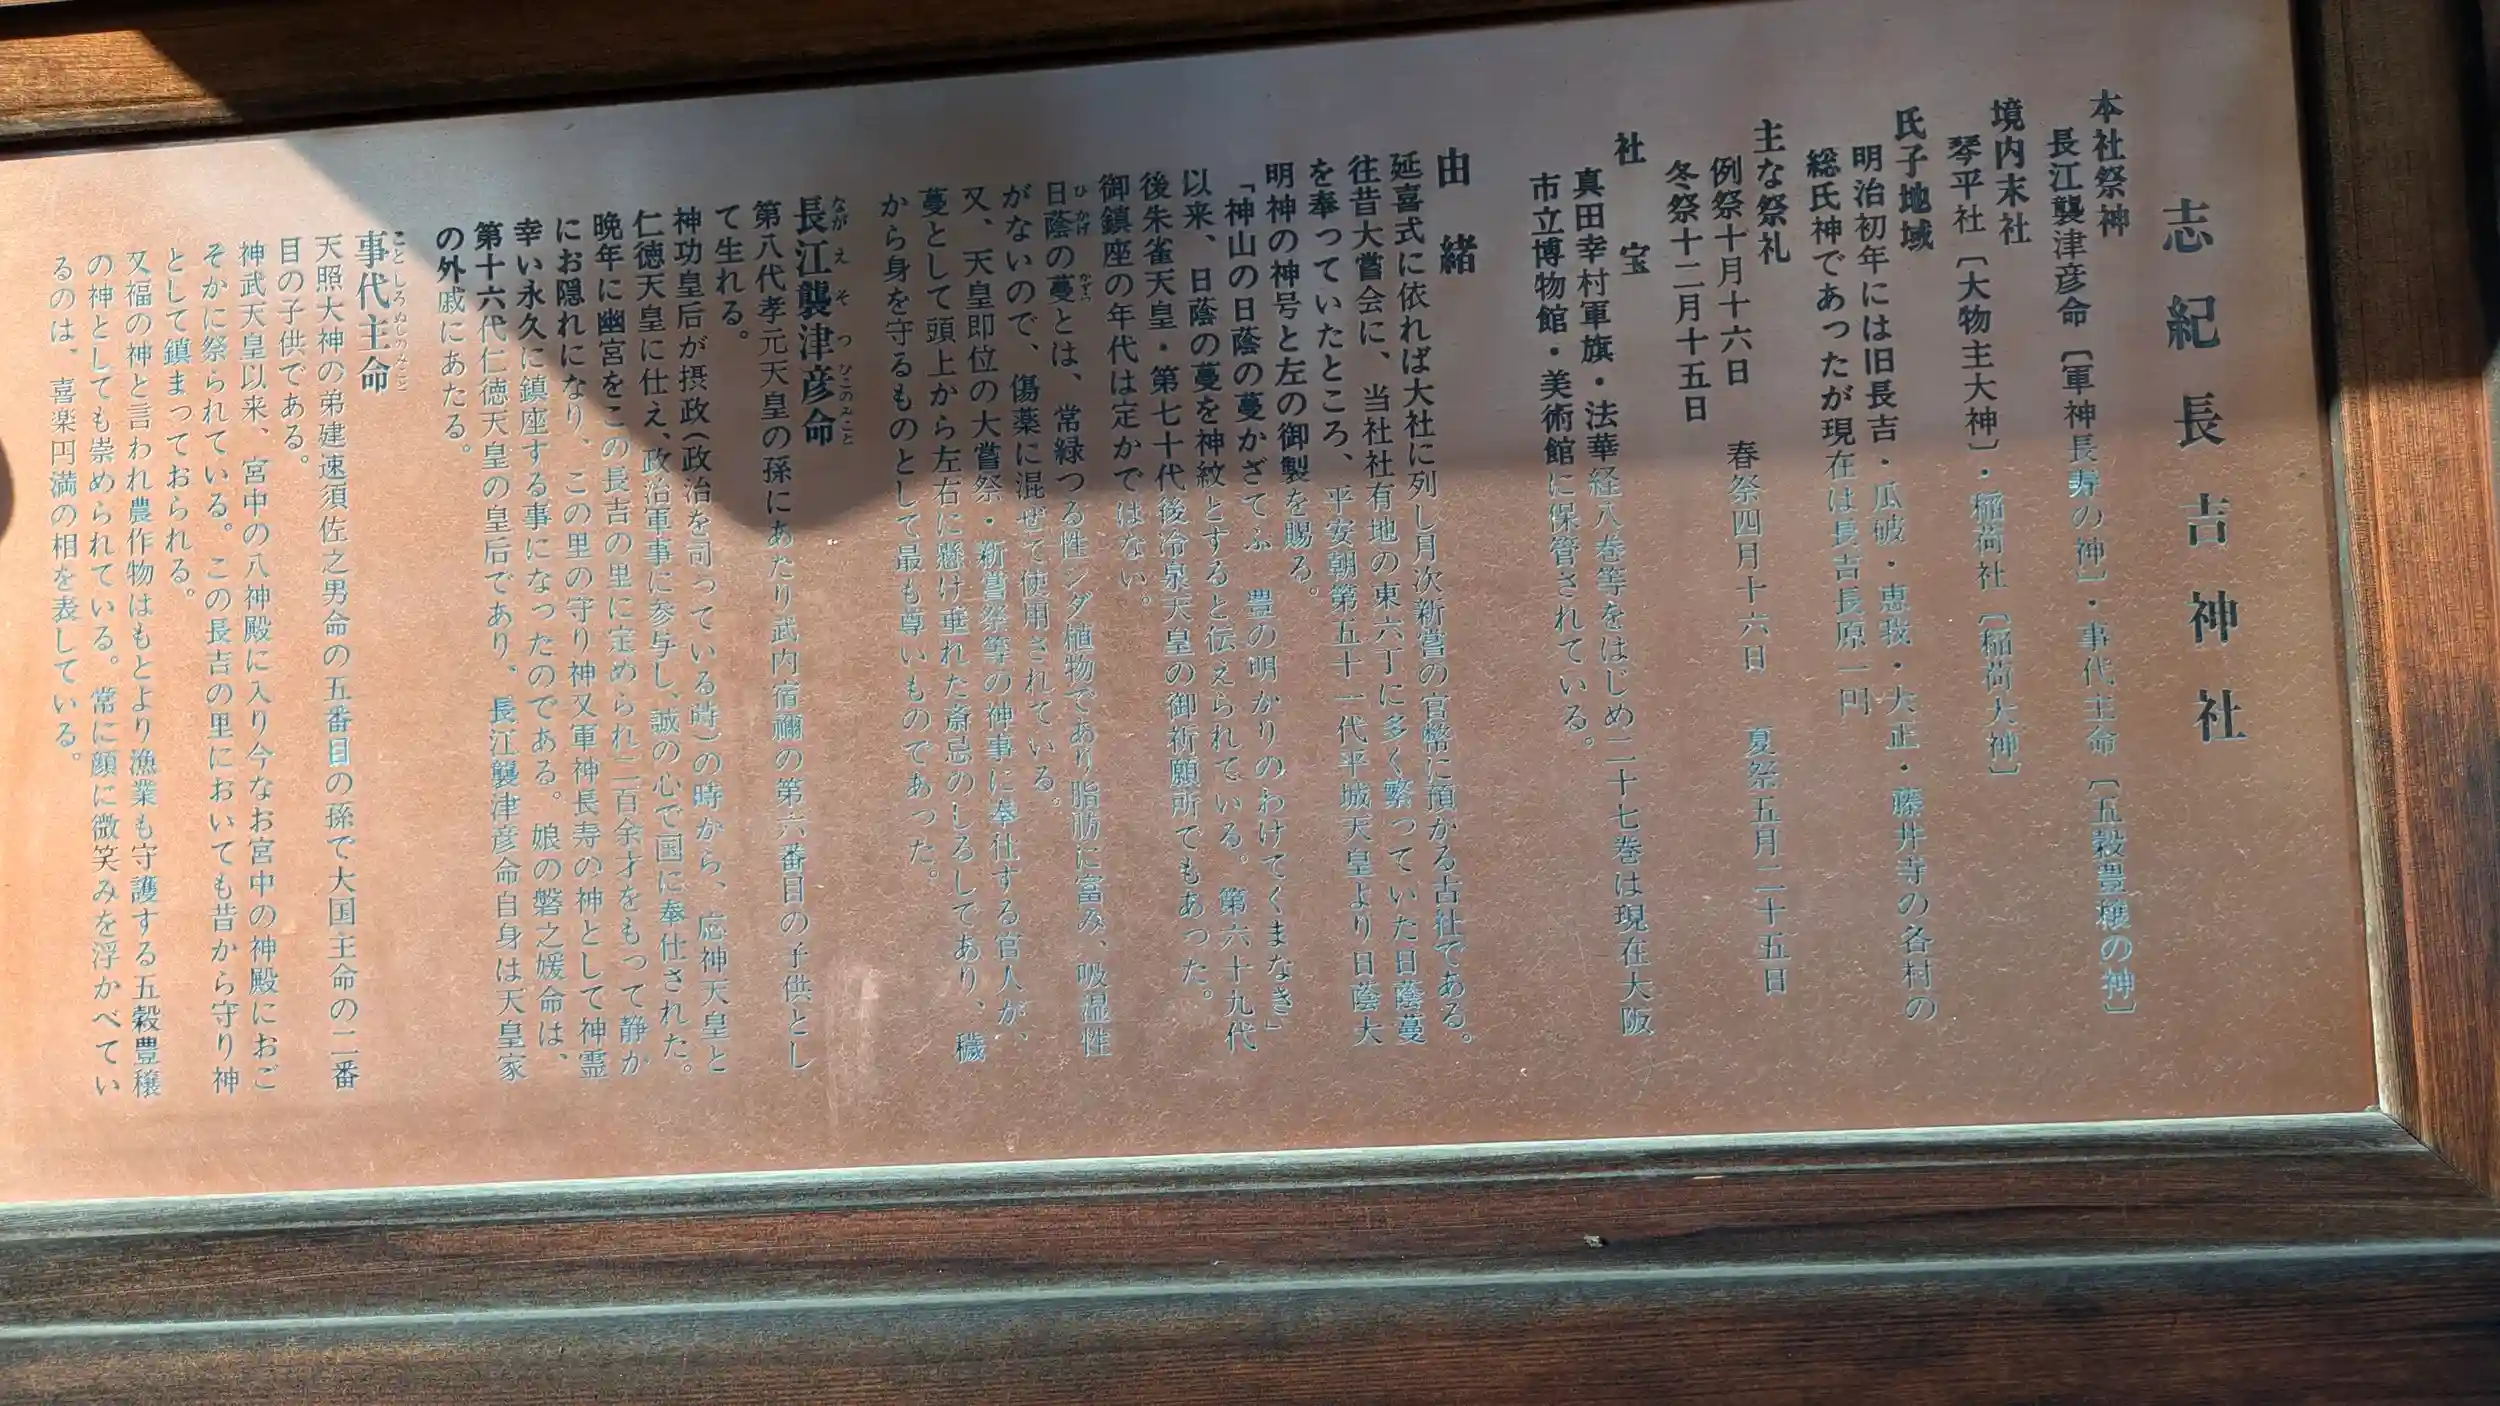 志紀長吉神社
本社祭神
長江襲津彦命〔軍神長寿の神〕・事代主命〔五穀豊穣の神〕
境内末社
琴平社〔大物主大神〕・稲荷社〔稲荷大神〕
氏子地域
明治初年には旧長吉・瓜破・恵我・大正・藤井寺の各村の
総氏神であったが現在は長吉長原一円
主な祭礼
例祭十月十六日 春祭四月十六日 夏祭五月二十五日
冬祭十二月十五日
社宝
真田幸村軍旗・法華経八巻等をはじめ二十七巻は現在大阪
市立博物館・美術館に保管されている。
由緒
延喜式に依れば大社に列し月次新嘗の官幣に預かる古社である。
往昔大嘗会に、当社社有地の東六丁に多く繁っていた日蔭蔓
を奉っていたところ、平安朝第五十一代平城天皇より日蔭大
明神の神号と左の御製を賜る。
「神山の日蔭の蔓かざてふ 豊の明かりのわけてくまなき」
以来、日蔭の蔓を神紋とすると伝えられている。第六十九代
後朱雀天皇・第七十代後冷泉天皇の御祈願所でもあった。
御鎮座の年代は定かではない。
日蔭の蔓とは、常緑つる性シダ植物であり脂肪に富み、吸湿性
がないので、傷薬に混ぜて使用されている。
又、天皇即位の大嘗祭・新嘗祭等の神事に奉仕する官人が、
蔓として頭上から左右に懸け垂れた斎忌のしるしであり、穢
から身を守るものとして最も尊いものであった。
長江襲津彦命
第八代孝元天皇の孫にあたり武内宿禰の第六番目の子供とし
て生れる。
神功皇后が摂政(政治を司っている時)の時から、応神天皇と
仁徳天皇に仕え、政治軍事に参与し、誠の心で国に奉仕された。
晩年に幽宮をこの長吉の里に定められ二百余才をもって静か
にお隠れになり、この里の守り神又軍神長寿の神として神霊
幸い永久に鎮座する事になったのである。娘の磐之媛命は、
第十六代仁徳天皇の皇后であり、長江襲津彦命自身は天皇家
の外戚にあたる。
事代主命
天照大神の弟建速須佐之男命の五番目の孫で大国主命の二番
目の子供である。
神武天皇以来、宮中の八神殿に入り今なお宮中の神殿におご
そかに祭られている。この長吉の里においても昔から守り神
として鎮まっておられる。
又福の神と言われ農作物はもとより漁業も守護する五穀豊穣
の神としても崇められている。常に顔に微笑みを浮かべてい
るのは、喜楽円満の相を表している。